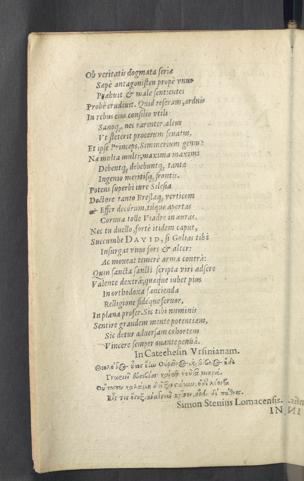 Ob veritatis dogmata seriæ
Sæpè antagonisten propè vnus
Præbuit & male sentientes
Probè erudiuit. Quid referam, ordnio
In rebus eius consilio vtili
Sanoq́, nec rarenter, aleus
Vt steterit procerum senatus,
Et ipse Princeps. Simmerium genus
Na multa multi, maxima maximi
Debentq́, debebuntq́, tanto
Ingenio meritisq́, frontis.
Potens superbi iure Silesia
Doctore tanto Breslaq́, verticem
Effer decorum, itique apertas
Cornua tolle Viadre inauras.
Nec tu duello, fortè itidem caput,
Succumbe DAVID, si Golias tibi
Insurgat vnus fors & alter:
Ac moueat temerè arma contrà:
Quin sancta sancti scripta viri adsere
Valente dextrâ, quæque iubet pius
In orthodoxa sancienda
Relligione fideque seruor,
In plana profer. Sic tibi numinis
Sentire grandem mente potentiam,
Sic detur aduersam cohortem
Vincere semper ouante penna.
In Catechesin Vrsinianam.
Simon Steuius Lomacensis.
IN